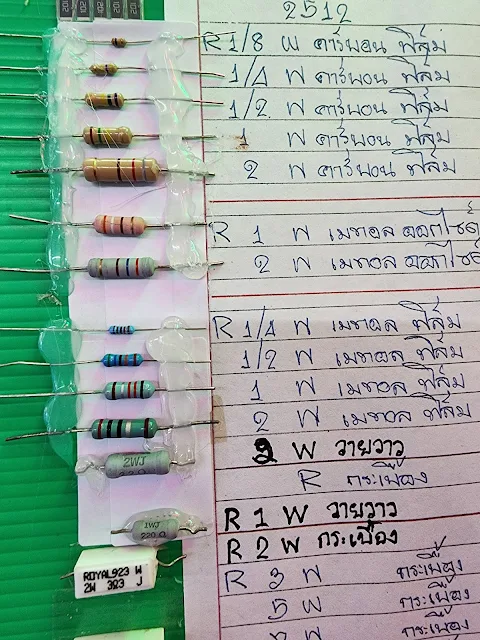 2512
R 1/8 W คาร์บอน ฟิล์ม
1/4 W คาร์บอน ฟิล์ม
1/2 W คาร์บอน ฟิล์ม
1 W คาร์บอน ฟิล์ม
2 W คาร์บอน ฟิล์ม
R 1 W เมทอล ออกไซด์
2 W เมทอล ออกไซด์
R 1/4 W เมทอล ฟิล์ม
1/2 W เมทอล ฟิล์ม
1 W เมทอล ฟิล์ม
2 W เมทอล ฟิล์ม
2WJ
2 W วายวาว
R กระเบื้อง
1WJ
220 Ω
R 1 W วายวาว
R 2 W กระเบื้อง
ROYAL923 W
2W 3Ω3 J
R 3 W กระเบื้อง
5 W กระเบื้อง
W กระเบื้อง